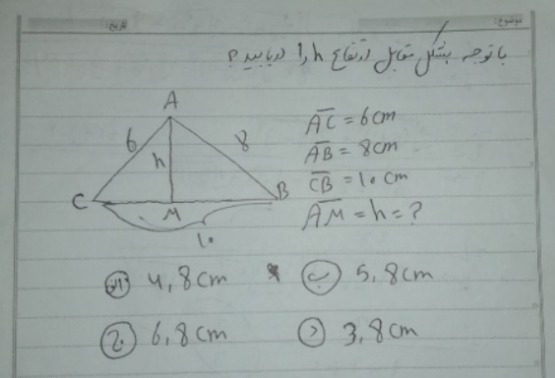 موضوع: تاریخ:
با توجه بشکل مقابل ارتفاع h را دریابید؟
A
6 h 8
C M B
10
AC = 6cm
AB = 8cm
CB = 10 cm
AM = h = ?
الف 4,8cm ب 5,8cm
ج 6,8cm د 3,8cm